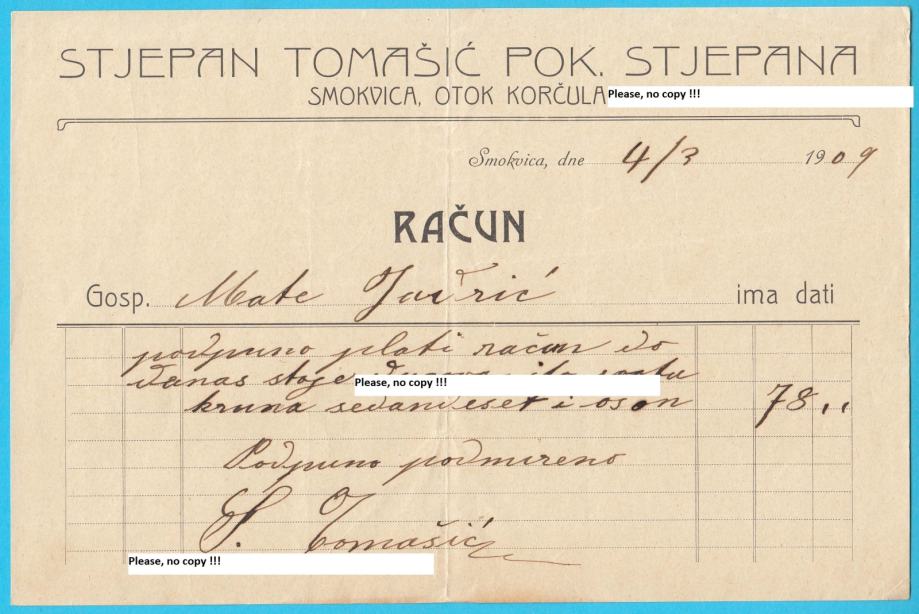 STJEPAN TOMAŠIĆ POK. STJEPANA
SMOKVICA, OTOK KORČULA Please, no copy !!!
Smokvica, dne 4/3 1909
RAČUN
Gosp. Mate ima dati
podpuno plati račun do
danas stoje Please, no copy !!!
kruna sedamdeset i osam 78,,
Podpuno podmireno
S. Tomašić
Please, no copy !!!